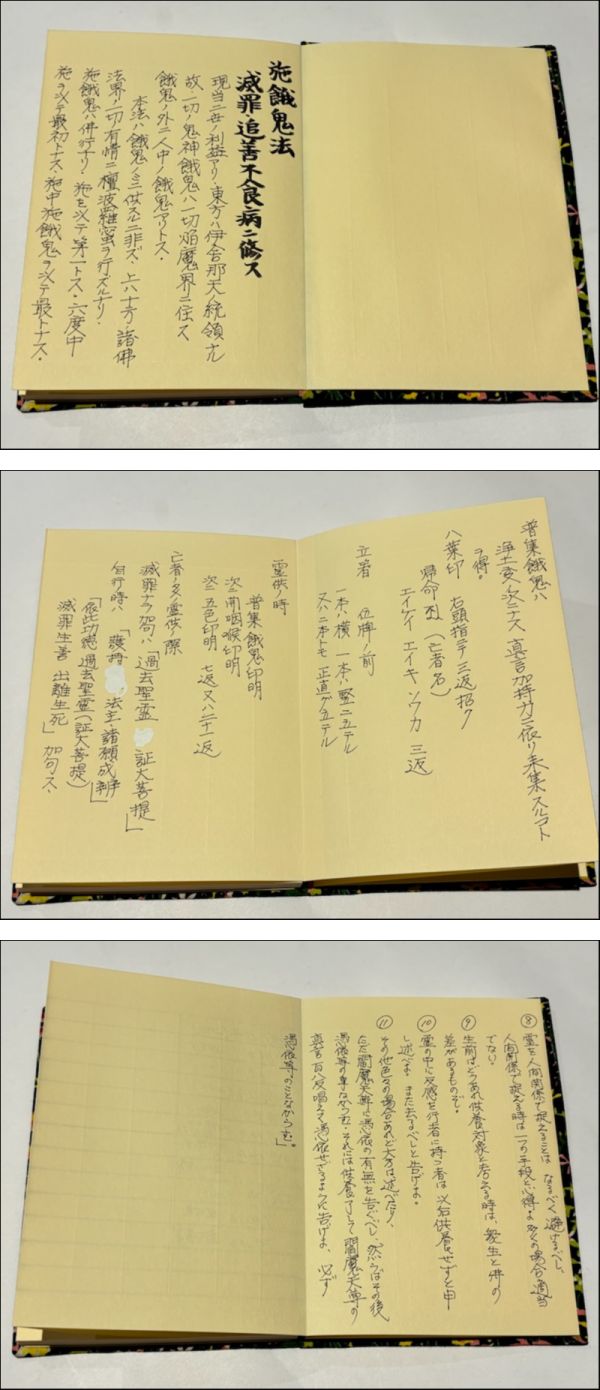 施餓鬼法
滅罪・追善不食病ニ修ス
現当二世ノ利益アリ・東方ハ伊舎那天ノ統領ナル
故・一切ノ鬼神餓鬼ハ一切焔魔界ニ住ス
餓鬼ノ外ニ人中ノ餓鬼アリトス・
本法ハ餓鬼ノミニ供スルニ非ズ・上ハ十方ノ諸佛
法界ノ一切有情ニ檀波羅蜜ヲ行ズルナリ・
施餓鬼ハ佛行ナリ・施を以テ第一トス・六度中
施ヲ以テ最初トナス・施中施餓鬼ヲ以テ最トナス・
普集餓鬼ハ
浄土変ノ次ニナス 真言加持力ニ依リ来集スルコト
ヲ得。
八葉印 右頭指ニテ三返招ク
帰命 (亡者名)
エイケイ エイキ ソワカ 三返
立箸 位牌ノ前
一本ハ横 一本ハ竪ニ立テル
又ハ二本トモ正直グ立テル
霊供ノ時
普集餓鬼印明
次ニ開咽喉印明
次ニ五色印明 七返又ハ二十一返
亡者ノ為ノ霊供ノ際
滅罪ナラ加句ハ「過去聖霊 証大菩提」
自行時ハ 「護持 法主・諸願成辨」
「依此功徳 過去聖霊(証大菩提)
滅罪生善 出離生死」 加句ス・
⑧ 霊を人間関係で捉えることは なるべく避けるべし。
人間関係で捉える時は一つの手段と心得よ 多くの場合適当
でない。
⑨ 生前はどうあれ供養対象と考える時は、衆生と佛の
差があるものぞ。
⑩ 霊の中に反感を行者に持つ者は 必ず供養せずと申
し述べよ。また去るべしと告げよ。
⑪ その他色々の場合あれど大方は述べたり、
ただ閻魔天尊に憑依の有無を告ぐべし、然らばその後
憑依等の事なからむ・それには供養了りして閻魔天尊の
真言 百八反唱えて憑依せざるように告げよ、必ず
憑依等のことなからむ。」